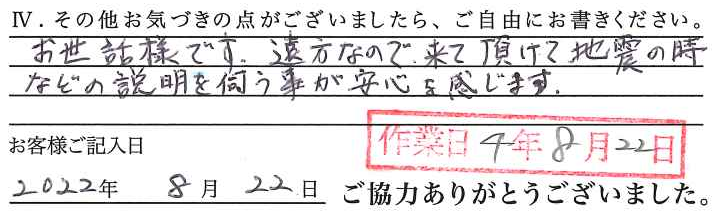 Ⅳ．その他お気づきの点がございましたら、ご自由にお書きください。
お世話様です。遠方なので、来て頂けて地震の時
などの説明を伺う事が安心を感じます。
お客様ご記入日
作業日 4年 8月22日
2022年 8月 22日 ご協力ありがとうございました。